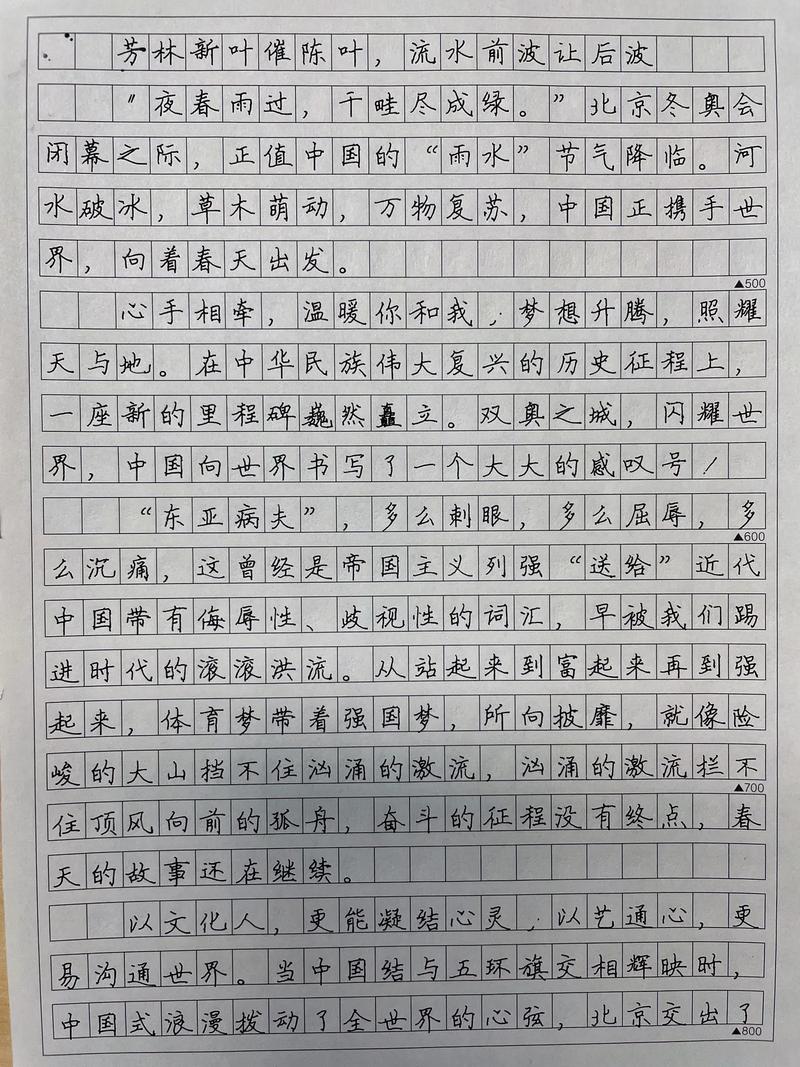 芳林新叶催陈叶，流水前波让后波
“夜春雨过，千畦尽成绿。”北京冬奥会
闭幕之际，正值中国的“雨水”节气降临。河
水破冰，草木萌动，万物复苏，中国正携手世
界，向着春天出发。
▲500
心手相牵，温暖你和我；梦想升腾，照耀
天与地。在中华民族伟大复兴的历史征程上，
一座新的里程碑巍然矗立。双奥之城，闪耀世
界，中国向世界书写了一个大大的感叹号！
“东亚病夫”，多么刺眼，多么屈辱，多
▲600
么沉痛，这曾经是帝国主义列强“送给”近代
中国带有侮辱性、歧视性的词汇，早被我们踢
进时代的滚滚洪流。从站起来到富起来再到强
起来，体育梦带着强国梦，所向披靡，就像险
峻的大山挡不住汹涌的激流，汹涌的激流拦不
▲700
住顶风向前的孤舟，奋斗的征程没有终点，春
天的故事还在继续。
以文化人，更能凝结心灵；以艺通心，更
易沟通世界。当中国结与五环旗交相辉映时，
中国式浪漫拨动了全世界的心弦，北京交出了
▲800